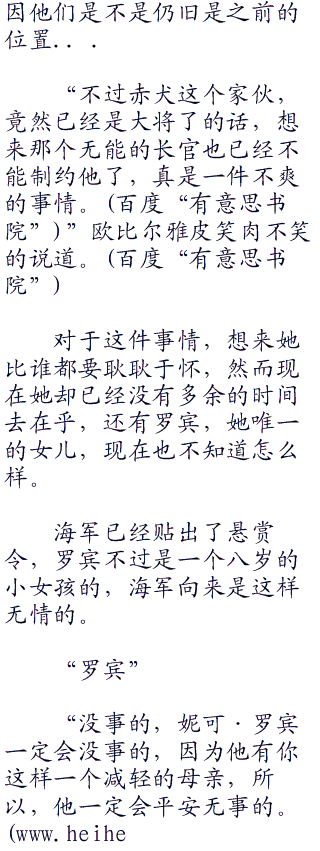 因他们是不是仍旧是之前的
位置...
“不过赤犬这个家伙，
竟然已经是大将了的话，想
来那个无能的长官也已经不
能制约他了，真是一件不爽
的事情。(百度“有意思书
院”)”欧比尔雅皮笑肉不笑
的说道。(百度“有意思书
院”)
对于这件事情，想来她
比谁都要耿耿于怀，然而现
在她却已经没有多余的时间
去在乎，还有罗宾，她唯一
的女儿，现在也不知道怎么
样。
海军已经贴出了悬赏
令，罗宾不过是一个八岁的
小女孩的，海军向来是这样
无情的。
“罗宾”
“没事的，妮可·罗宾
一定会没事的，因为他有你
这样一个减轻的母亲，所
以，他一定会平安无事的。
(www.heihe